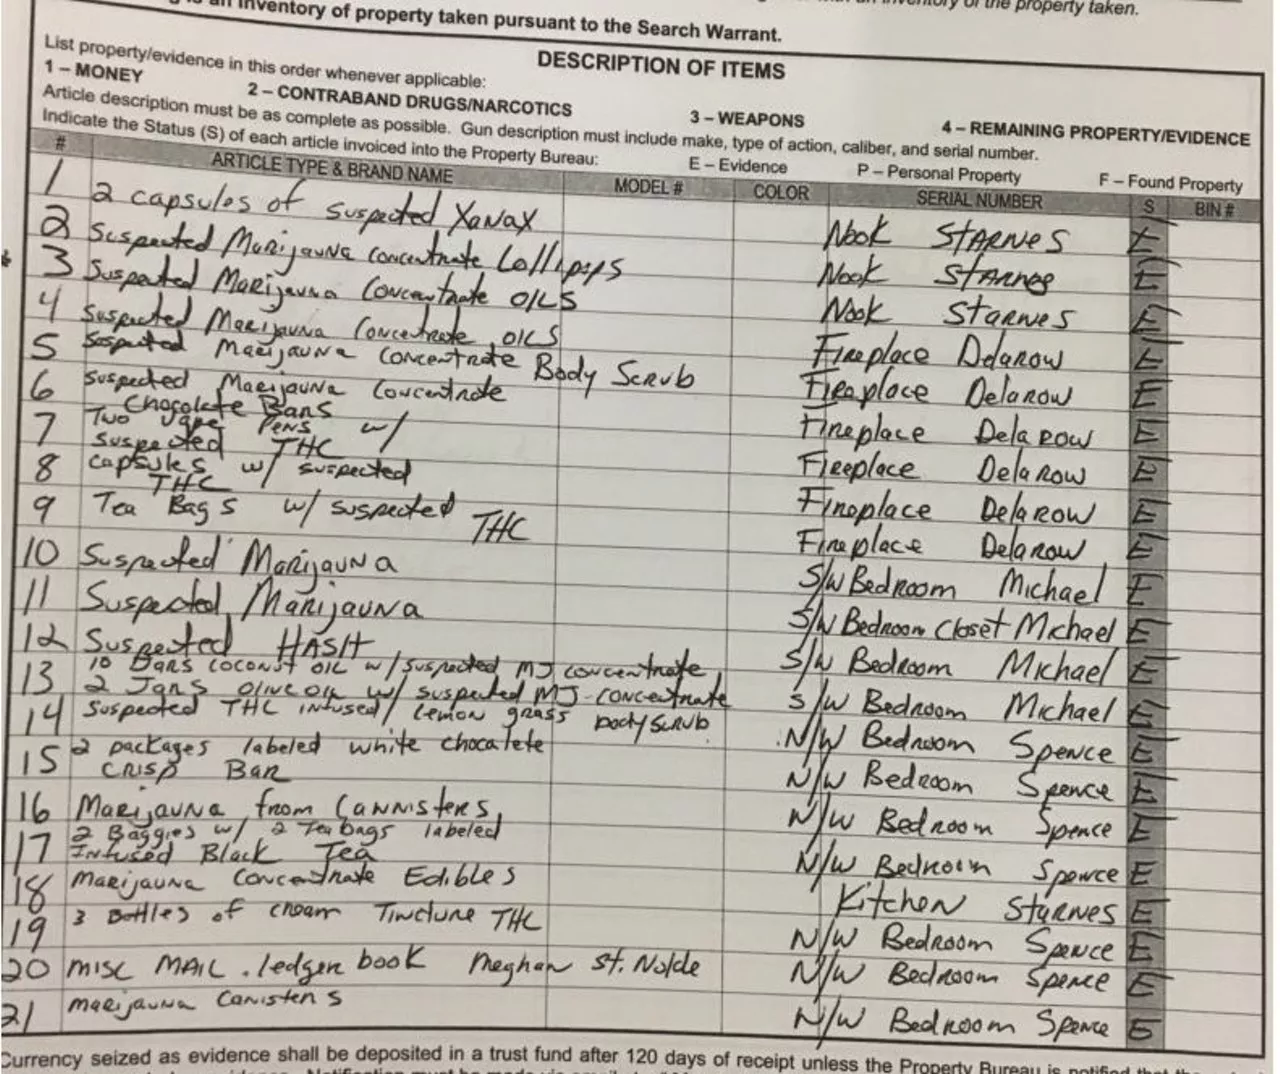 an inventory of property taken pursuant to the Search Warrant.
inventory of the property taken.
DESCRIPTION OF ITEMS
List property/evidence in this order whenever applicable:
1 – MONEY 2 – CONTRABAND DRUGS/NARCOTICS 3 – WEAPONS 4 – REMAINING PROPERTY/EVIDENCE
Article description must be as complete as possible. Gun description must include make, type of action, caliber, and serial number.
Indicate the Status (S) of each article invoiced into the Property Bureau: E – Evidence P – Personal Property F – Found Property
# ARTICLE TYPE & BRAND NAME MODEL # COLOR SERIAL NUMBER S BIN #
1 2 capsules of suspected Xanax Nook STARNES E
2 Suspected Marijauna Concentrate Lollipops Nook STARNES E
3 Suspected Marijauna Concentrate OILS Nook Starnes E
4 Suspected Marijauna Concentrate OILS Fireplace Delarow E
5 Suspected Marijauna Concentrate Body Scrub Fireplace Delarow E
6 Suspected Marijauna Concentrate Fireplace Delarow E
Chocolate Bars
7 Two Vape Pens w/ Fireplace Delarow E
Suspected THC
8 capsules w/ suspected Fireplace Delarow E
THC
9 Tea Bags w/ suspected THC Fireplace Delarow E
10 Suspected Marijauna S/W Bedroom Michael E
11 Suspected Marijauna S/W Bedroom Closet Michael E
12 Suspected HASH S/W Bedroom Michael E
13 10 Bars coconut oil w/ suspected MJ concentrate S/W Bedroom Michael E
2 Jars olive oil w/ suspected MJ concentrate
14 Suspected THC infused/ lemon grass body scrub N/W Bedroom Spence E
15 2 packages labeled white chocalete N/W Bedroom Spence E
crisp Bar
16 Marijauna from Cannisters N/W Bedroom Spence E
17 2 Baggies w/ 2 Tea bags labeled N/W Bedroom Spence E
Infused Black Tea
18 Marijauna Concentrate Edibles Kitchen Starnes E
19 3 Bottles of cream Tincture THC N/W Bedroom Spence E
20 misc MAIL . ledger book Meghan St. Nolde N/W Bedroom Spence E
21 marijauna Canisters N/W Bedroom Spence E
Currency seized as evidence shall be deposited in a trust fund after 120 days of receipt unless the Property Bureau is notified that the